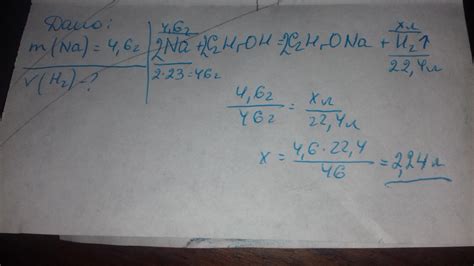 Дано:
m(Na) = 4,6г
V(H₂) - ?
4,6г x л
2Na + 2C₂H₅OH = 2C₂H₅ONa + H₂↑
2·23=46г 22,4л
4,6г / 46г = x л / 22,4л
x = 4,6·22,4 / 46 = 2,24л